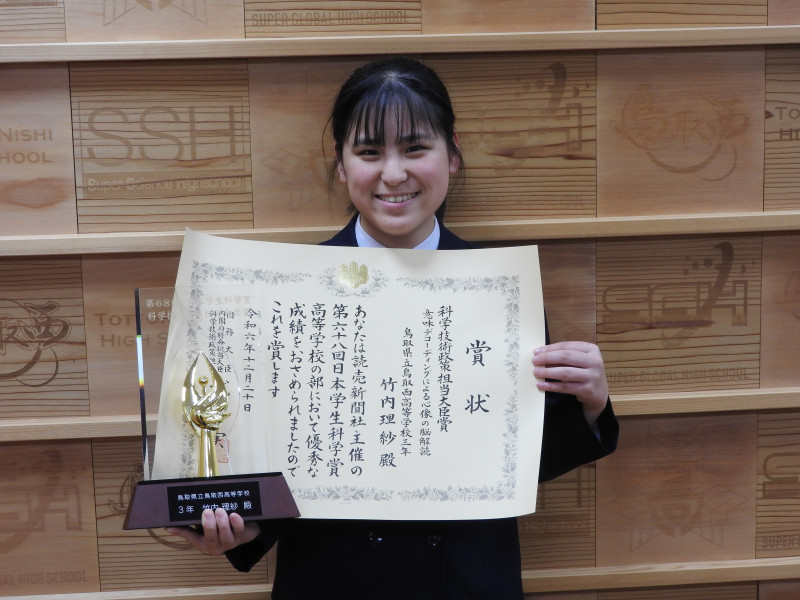 SUPER GLOBAL HIGH SCHOOL
NISHI
SCHOOL
SSH
Super Science Highschool
鳥取西
賞状
科学技術政策担当大臣賞
意味デコーディングによる心像の脳解読
鳥取県立鳥取西高等学校三年
竹内理紗殿
あなたは読売新聞社主催の
第六十八回日本学生科学賞
高等学校の部において優秀な
成績をおさめられましたので
これを賞します
令和六年十二月二十日
内閣府特命担当大臣
科学技術政策
第68
学生科学賞
科学技
鳥取県立鳥取西高等学校
3年 竹内 理紗 殿